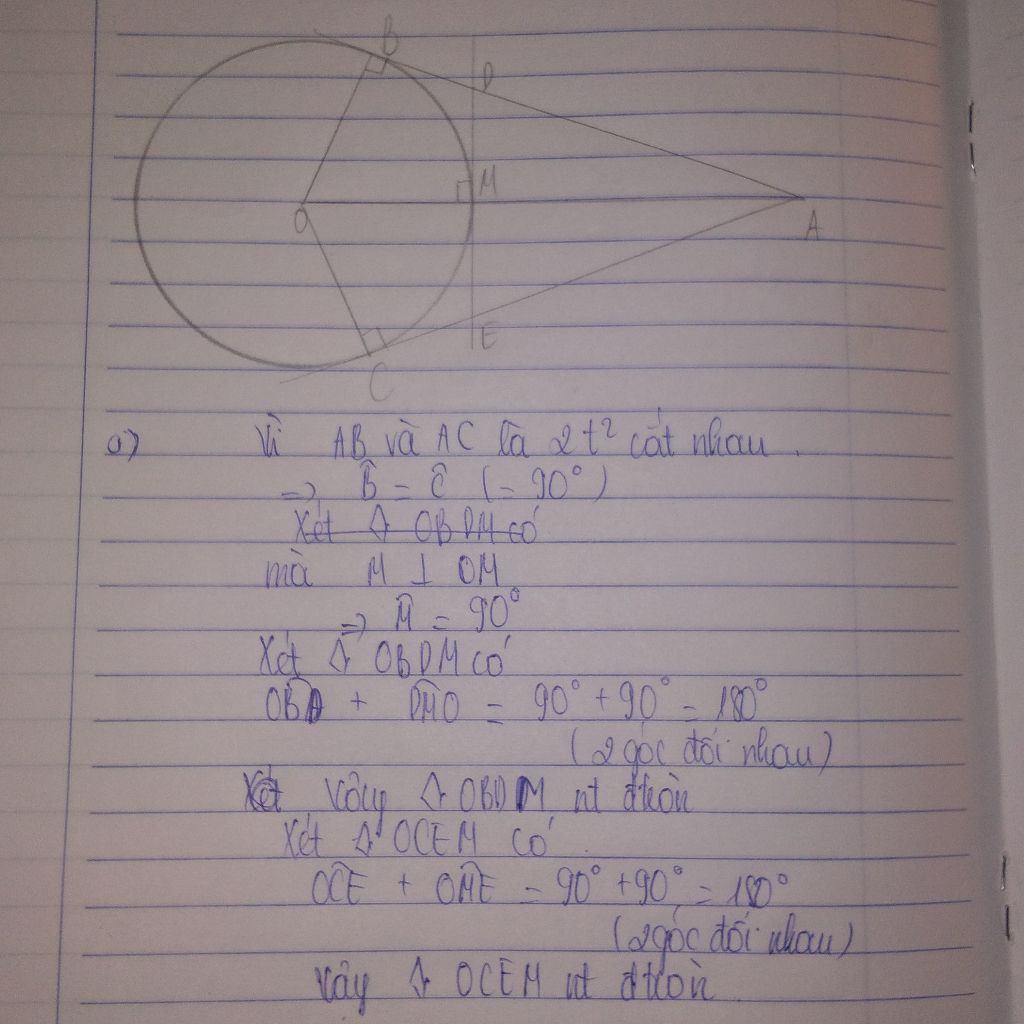 B
D
M
O
A
E
C
a) Vì AB và AC là 2 t² cắt nhau.
=> B̂ = Ĉ (= 90°)
Xét OBDM có
mà M ⊥ OM
=> M̂ = 90°
Xét ◊ OBDM có
OB̂D + DM̂O = 90° + 90° = 180°
(2 góc đối nhau)
Vậy ◊ OBDM nt đtròn
Xét ◊ OCEM có
OĈE + OM̂E = 90° + 90° = 180°
(2 góc đối nhau)
Vậy ◊ OCEM nt đtròn